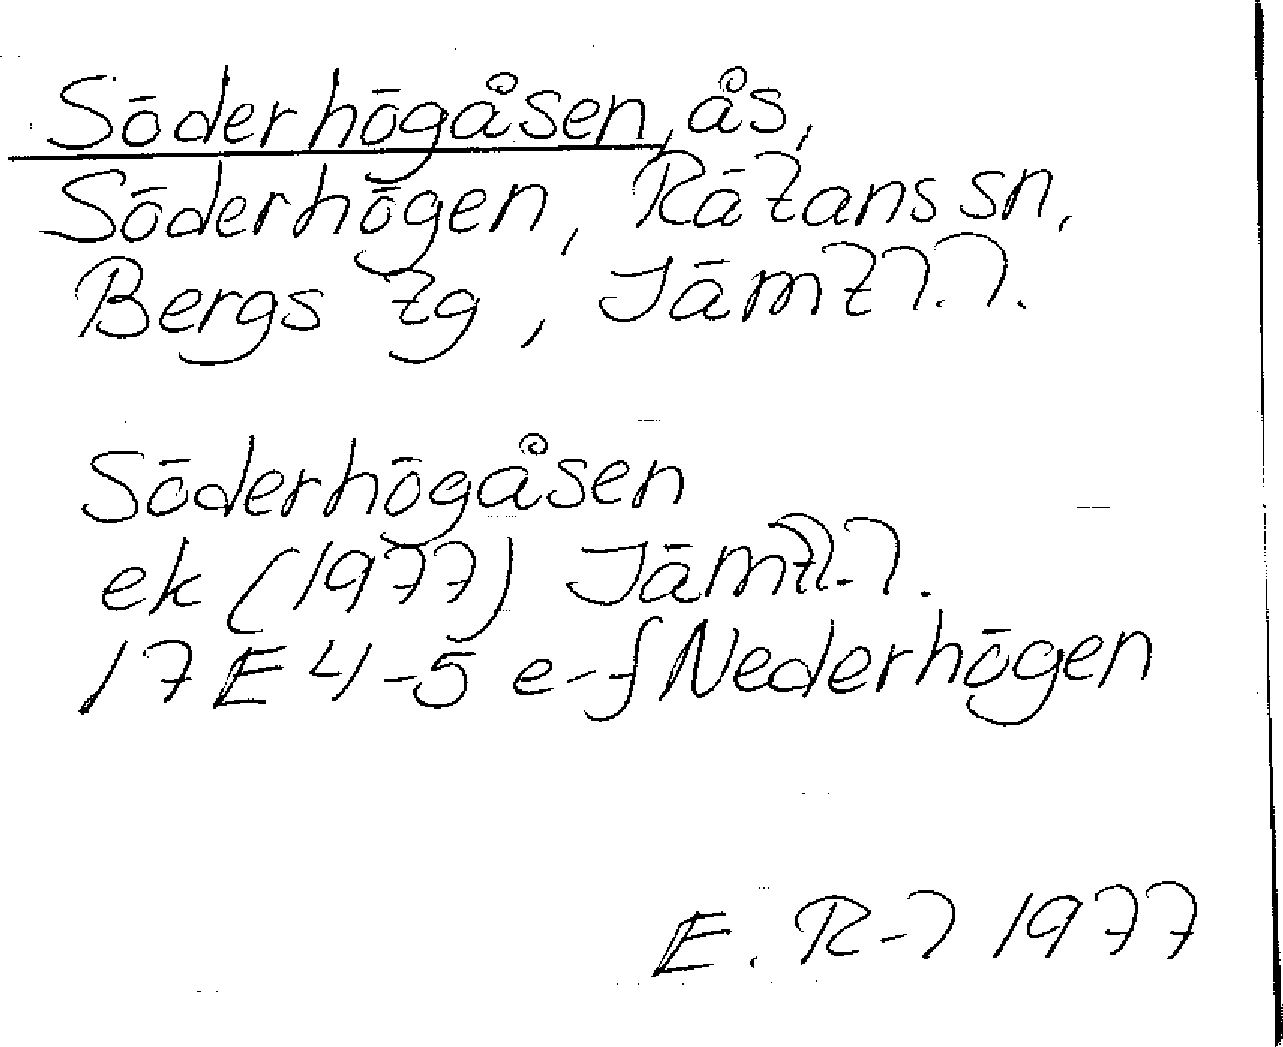 Söderhögåsen, ås,
Söderhögen, Rätans sn,
Bergs tg, Jämtl.l.
Söderhögåsen
ek (1977) Jämtl.l.
17E 4-5 e-f Nederhögen
E. R-l 1977